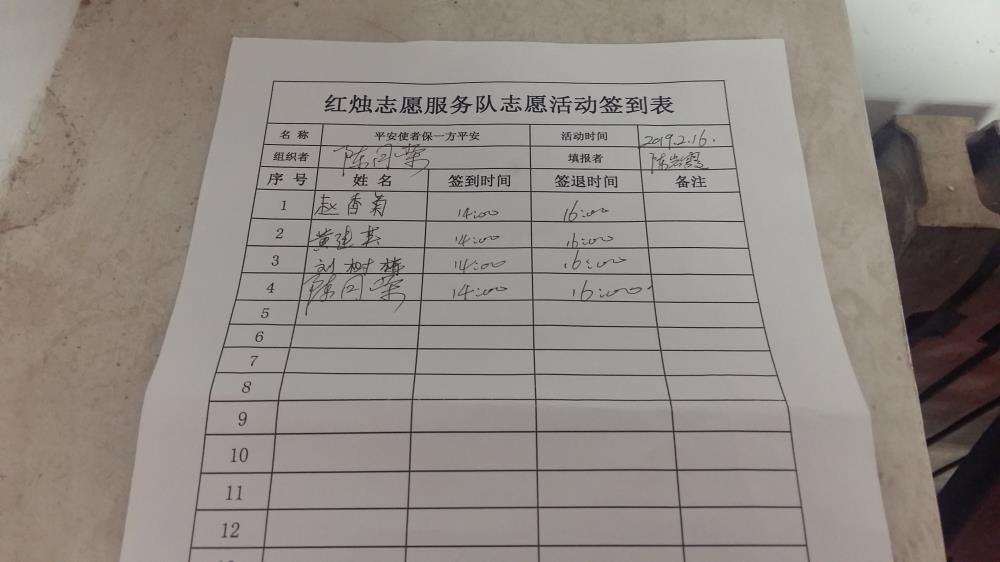 红烛志愿服务队志愿活动签到表
名 称 平安使者保一方平安 活动时间 2019.2.16.
组织者 陈同荣 填报者 陈岩
序 号 姓 名 签到时间 签退时间 备注
1 赵香菊 14:00 16:00
2 黄建英 14:00 16:00
3 刘树梅 14:00 16:00
4 陈同荣 14:00 16:00
5
6
7
8
9
10
11
12